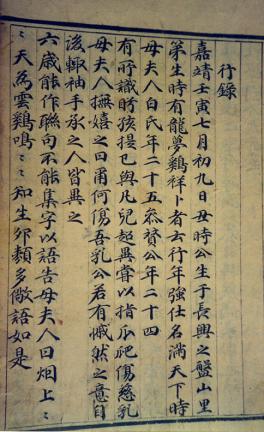 行錄
嘉靖壬寅七月初九日丑時公生于長興之盤山里
第生時有龍夢鷄祥卜者云行年強仕名滿天下時
母夫人白氏年二十五叅贊公年二十四
有所識眄孩提已與凡兒超異嘗以指爪傷慈乳
母夫人撫嬉之曰甭何傷吾乳公若有慽然之意自
後輒袖手承之人皆異之
六歲能作聯句不能集字以語告母夫人曰烟上〻
〻天爲雲鷄鳴〻〻知生卵類多儆語如是